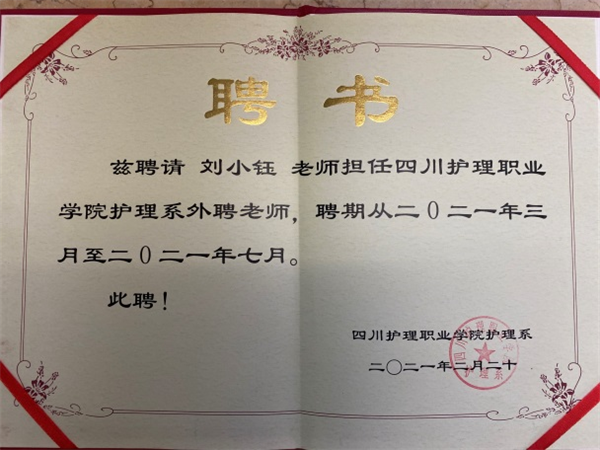 聘书
兹聘请 刘小钰 老师担任四川护理职业
学院护理系外聘老师，聘期从二〇二一年三
月至二〇二一年七月。
此聘！
四川护理职业学院护理系
二〇二一年二月二十
护理系